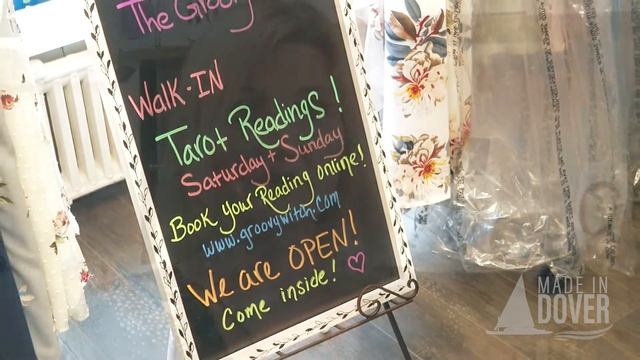 The Groovy
Walk-IN
Tarot Readings!
Saturday + Sunday
Book your Reading online!
www.groovywitch.com
We are OPEN!
Come inside!
MADE IN
DOVER